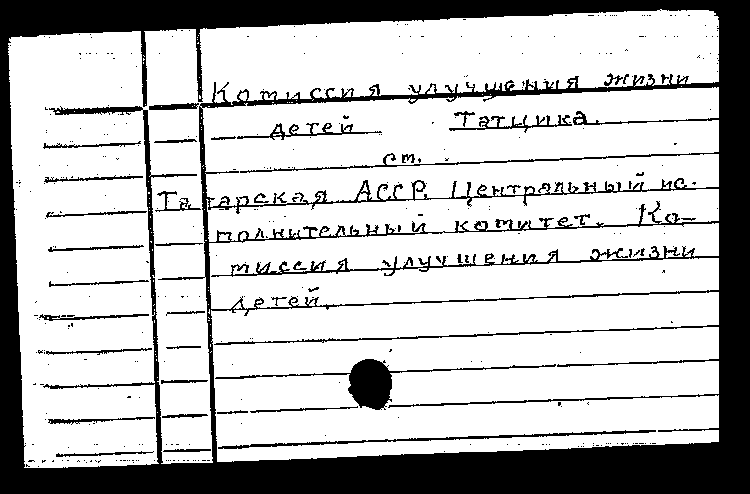 Комиссия улучшения жизни
детей Татцика.
ст.
Татарская АССР. Центральный ис-
полнительный комитет. Ко-
миссия улучшения жизни
детей.